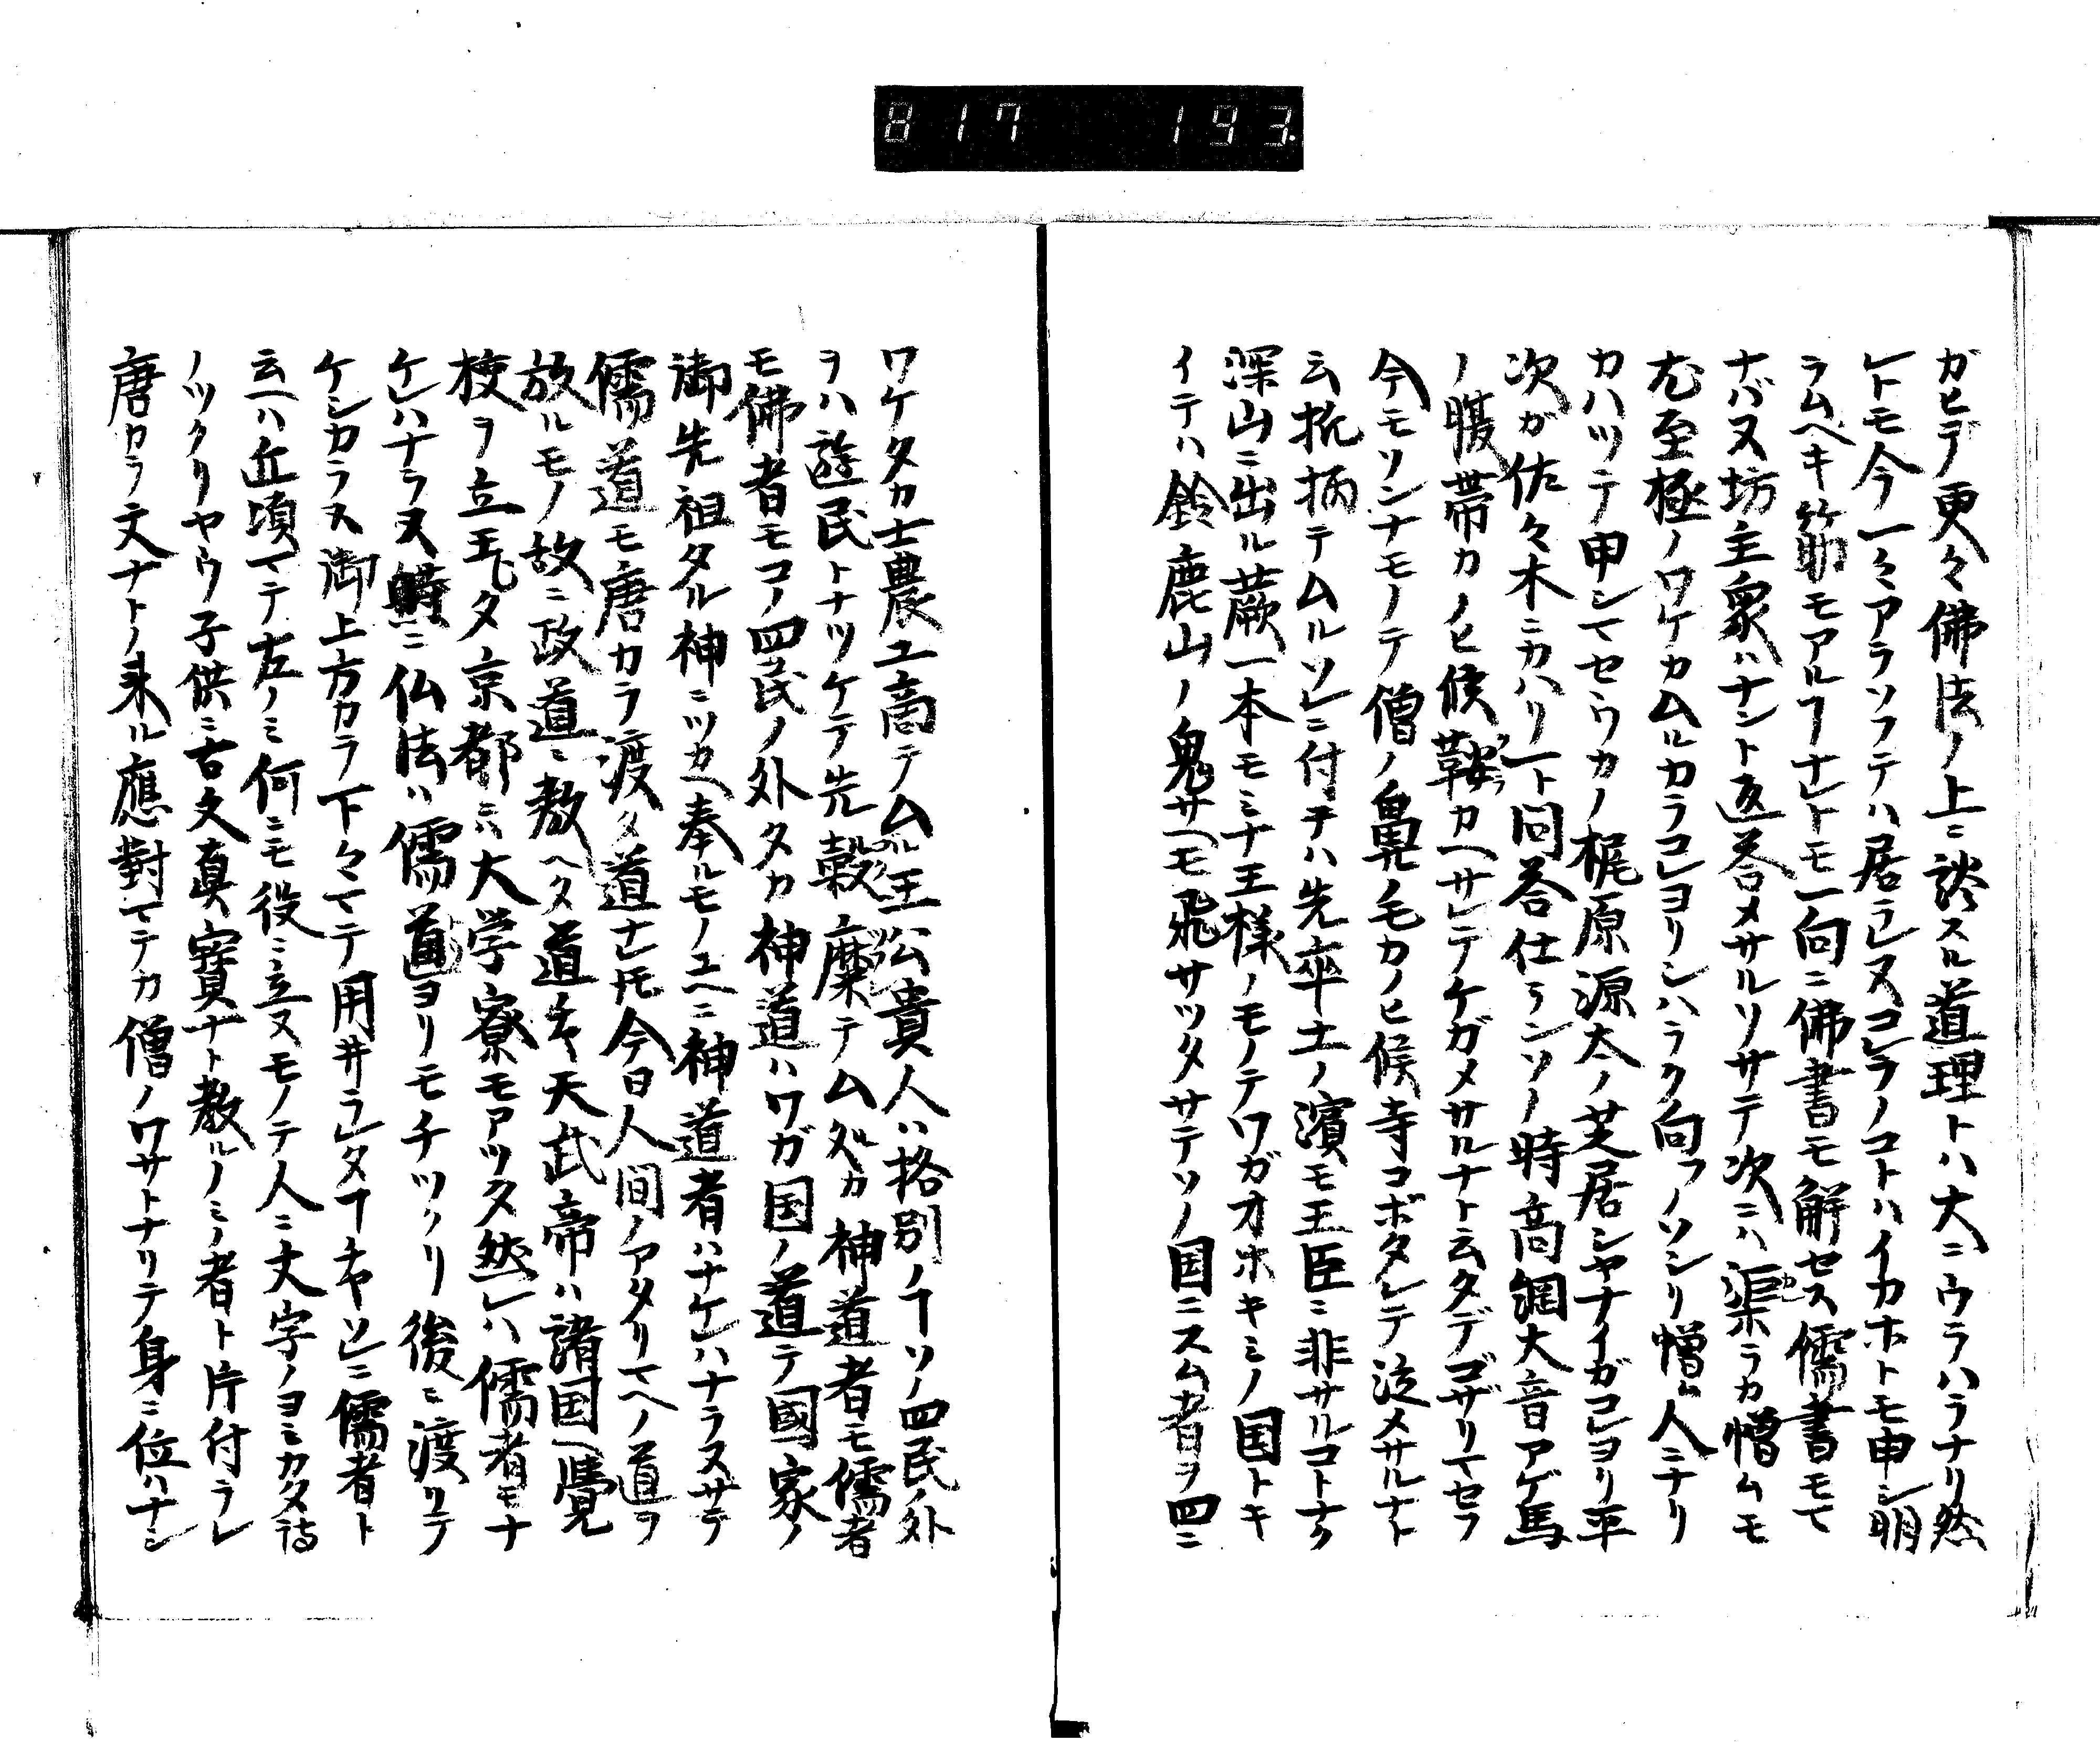 817 193.
ガヒデ更々佛法ノ上ニ談スル道理トハ大ニウラハラナリ然
レトモ今一々アラソフテハ居ラレヌコレラノコトハイカホトモ申シ明
ラムヘキ筋モアルヿナレトモ一向ニ佛書モ解セス儒書モモ
ナバヌ坊主衆ハナント返答メサルソサテ次ニハ渠ラカ憎ムモ
尤至極ノワケカムルカラコレヨリシハラク向フノソシリ憎ム人ニナリ
カハツテ申シマセウカノ梶原源太ノ芝居シヤナイガコレヨリ平
次ガ佐々木ニカハリ一ト問答仕ランソノ時高調大音アゲ馬
ノ腹帯カノヒ候鞍カヘサレテケガメサルナト云タデゴザリマセフ
今モソンナモノテ僧ノ鼻ノ毛カノヒ候寺コボタレテ泣メサルナト
云挨拶テムルソレニ付テハ先卒土ノ濱モ王臣ニ非サルコトナク
深山ニ出ル蕨一本モミナ王様ノモノテワガオホキミノ国トキ
イテハ鈴鹿山ノ鬼サヘモ飛サツタサテソノ国ニスム者ヲ四ニ
ワケタカ士農工商テムル王公貴人ハ格別ノヿソノ四民ノ外
ヲハ遊民トナツケテ先穀麋テムルガ神道者モ儒者
モ佛者モコノ四民ノ外タカ神道ハワガ国ノ道テ國家ノ
御先祖タル神ニツカヘ奉ルモノユヘニ神道者ハナケレハナラヌサテ
儒道モ唐カラ渡タ道ナレ𪜈今日人間ノアタリマヘノ道ヲ
放ルモノ故ニ政道ニ教ヘタ道ユヘ天武帝ハ諸国ヘ黌
校ヲ立玉ヒタ京都ニハ大学寮モアツタ然レハ儒者モナ
ケレハナラヌ時ニ仏法ハ儒道ヨリモチツクリ後ニ渡リテ
ケシカラス御上方カラ下々マテ用井ラレタヿチヤソレニ儒者ト
云ヘハ近頃マテ左ノミ何ニモ役ニ立ヌモノテ人ニ文字ノヨミカタ詩
ノツクリヤウ子供ニ古文真寳ナト教ルノミノ者ト片付ラレ
唐カラ文ナトノ来ル應對マテカ僧ノワサトナリテ身ニ位ハナシ